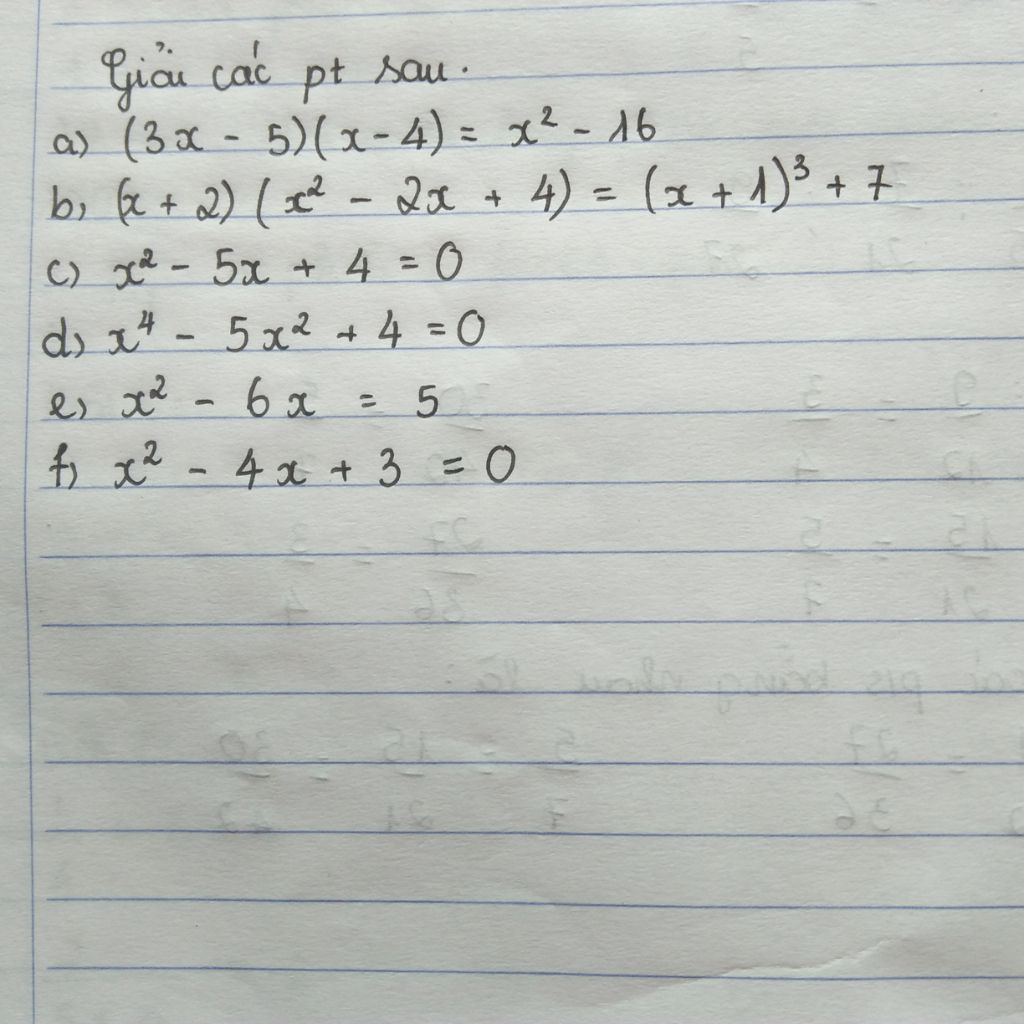 Giải các pt sau.
a) (3x - 5)(x - 4) = x² - 16
b) (x + 2) (x² - 2x + 4) = (x + 1)³ + 7
c) x² - 5x + 4 = 0
d) x⁴ - 5x² + 4 = 0
e) x² - 6x = 5
f) x² - 4x + 3 = 0